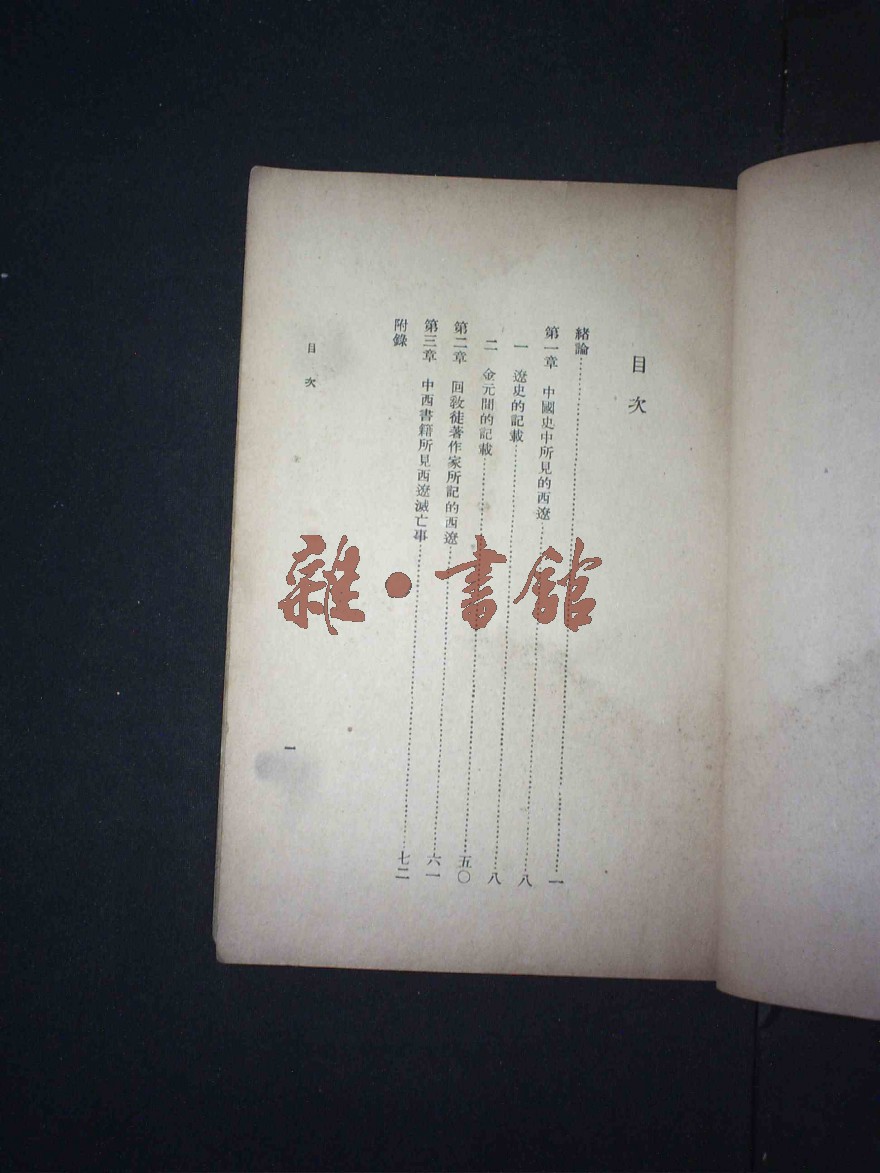 目次
緒論……………一
第一章 中國史中所見的西遼……………八
一 遼史的記載……………八
二 金元間的記載……………五〇
第二章 回敎徒著作家所記的西遼……………六一
第三章 中西書籍所見西遼滅亡事……………七二
附錄
目次
一
雜·書館